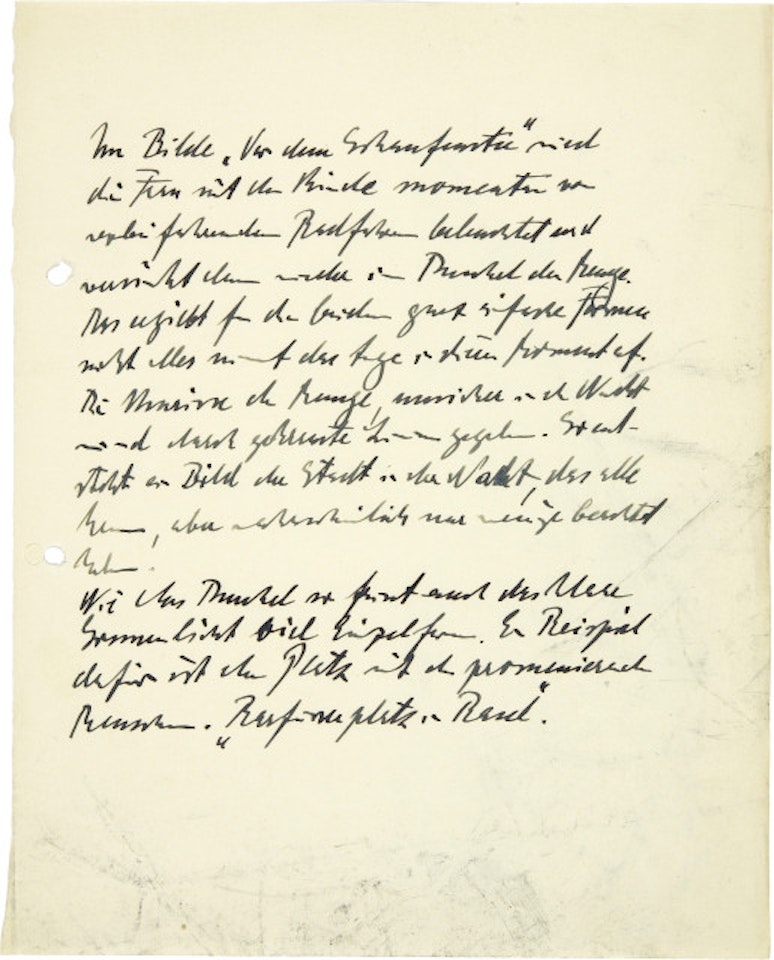 Im Bilde „Vor dem Schaufenster" wird
die Frau mit dem Kinde momentan von
vorbeifahrenden Radfahrern beleuchtet und
versinkt dann wieder im Dunkel der Menge.
Das ergibt für die beiden ganz einfache Formen
nicht alles nimmt das Auge in diesem Moment auf.
Die Umrisse der Menge, unsicher in der Nacht
sind durch gegeben. So ent-
steht ein Bild der Stadt in der Nacht, das alle
kennen, aber wahrscheinlich nur wenige beachtet
haben.
Wie das Dunkel so frisst auch das
Sonnenlicht viel Einzelform. Ein Beispiel
dafür ist der Platz mit den promenierenden
Menschen. „Barfüsserplatz in Basel".